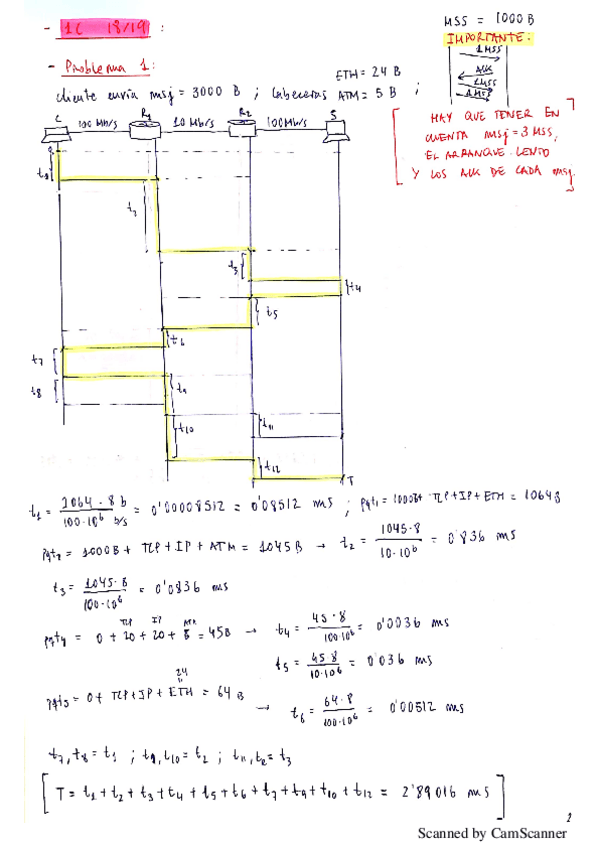 - 1C 18/19 :
MSS = 1000 B
IMPORTANTE:
1MSS
ACK
1MSS
1MSS
- Problema 1:
ETH = 24 B
cliente envía msj = 3000 B ; Cabeceras ATM = 5 B ;
C 100 Mb/s R1 10 Mb/s R2 100 Mb/s S
HAY QUE TENER EN
CUENTA msj = 3 MSS,
EL ARRANQUE LENTO
Y LOS ACK DE CADA msj.
t1
t2
t3
t4
t5
t6
t7
t8
t9
t10
t11
t12
T
t1 = 1064 · 8 b / 100·10⁶ b/s = 0'00008512 = 0'08512 ms ; pqt1 = 1000B + TCP+IP+ETH = 1064B
pqt2 = 1000B + TCP + IP + ATM = 1045 B → t2 = 1045·8 / 10·10⁶ = 0'836 ms
t3 = 1045·8 / 100·10⁶ = 0'0836 ms
TCP IP ATM
pqt4 = 0 + 20 + 20 + 5 = 45B → t4 = 45·8 / 100·10⁶ = 0'0036 ms
t5 = 45·8 / 10·10⁶ = 0'036 ms
24
pqt5 = 0 + TCP+IP + ETH = 64 B → t6 = 64·8 / 100·10⁶ = 0'00512 ms
t7, t8 = t1 ; t9, t10 = t2 ; t11, t12 = t3
[ T = t1 + t2 + t3 + t4 + t5 + t6 + t7 + t9 + t10 + t12 = 2'89016 ms ]
2
Scanned by CamScanner